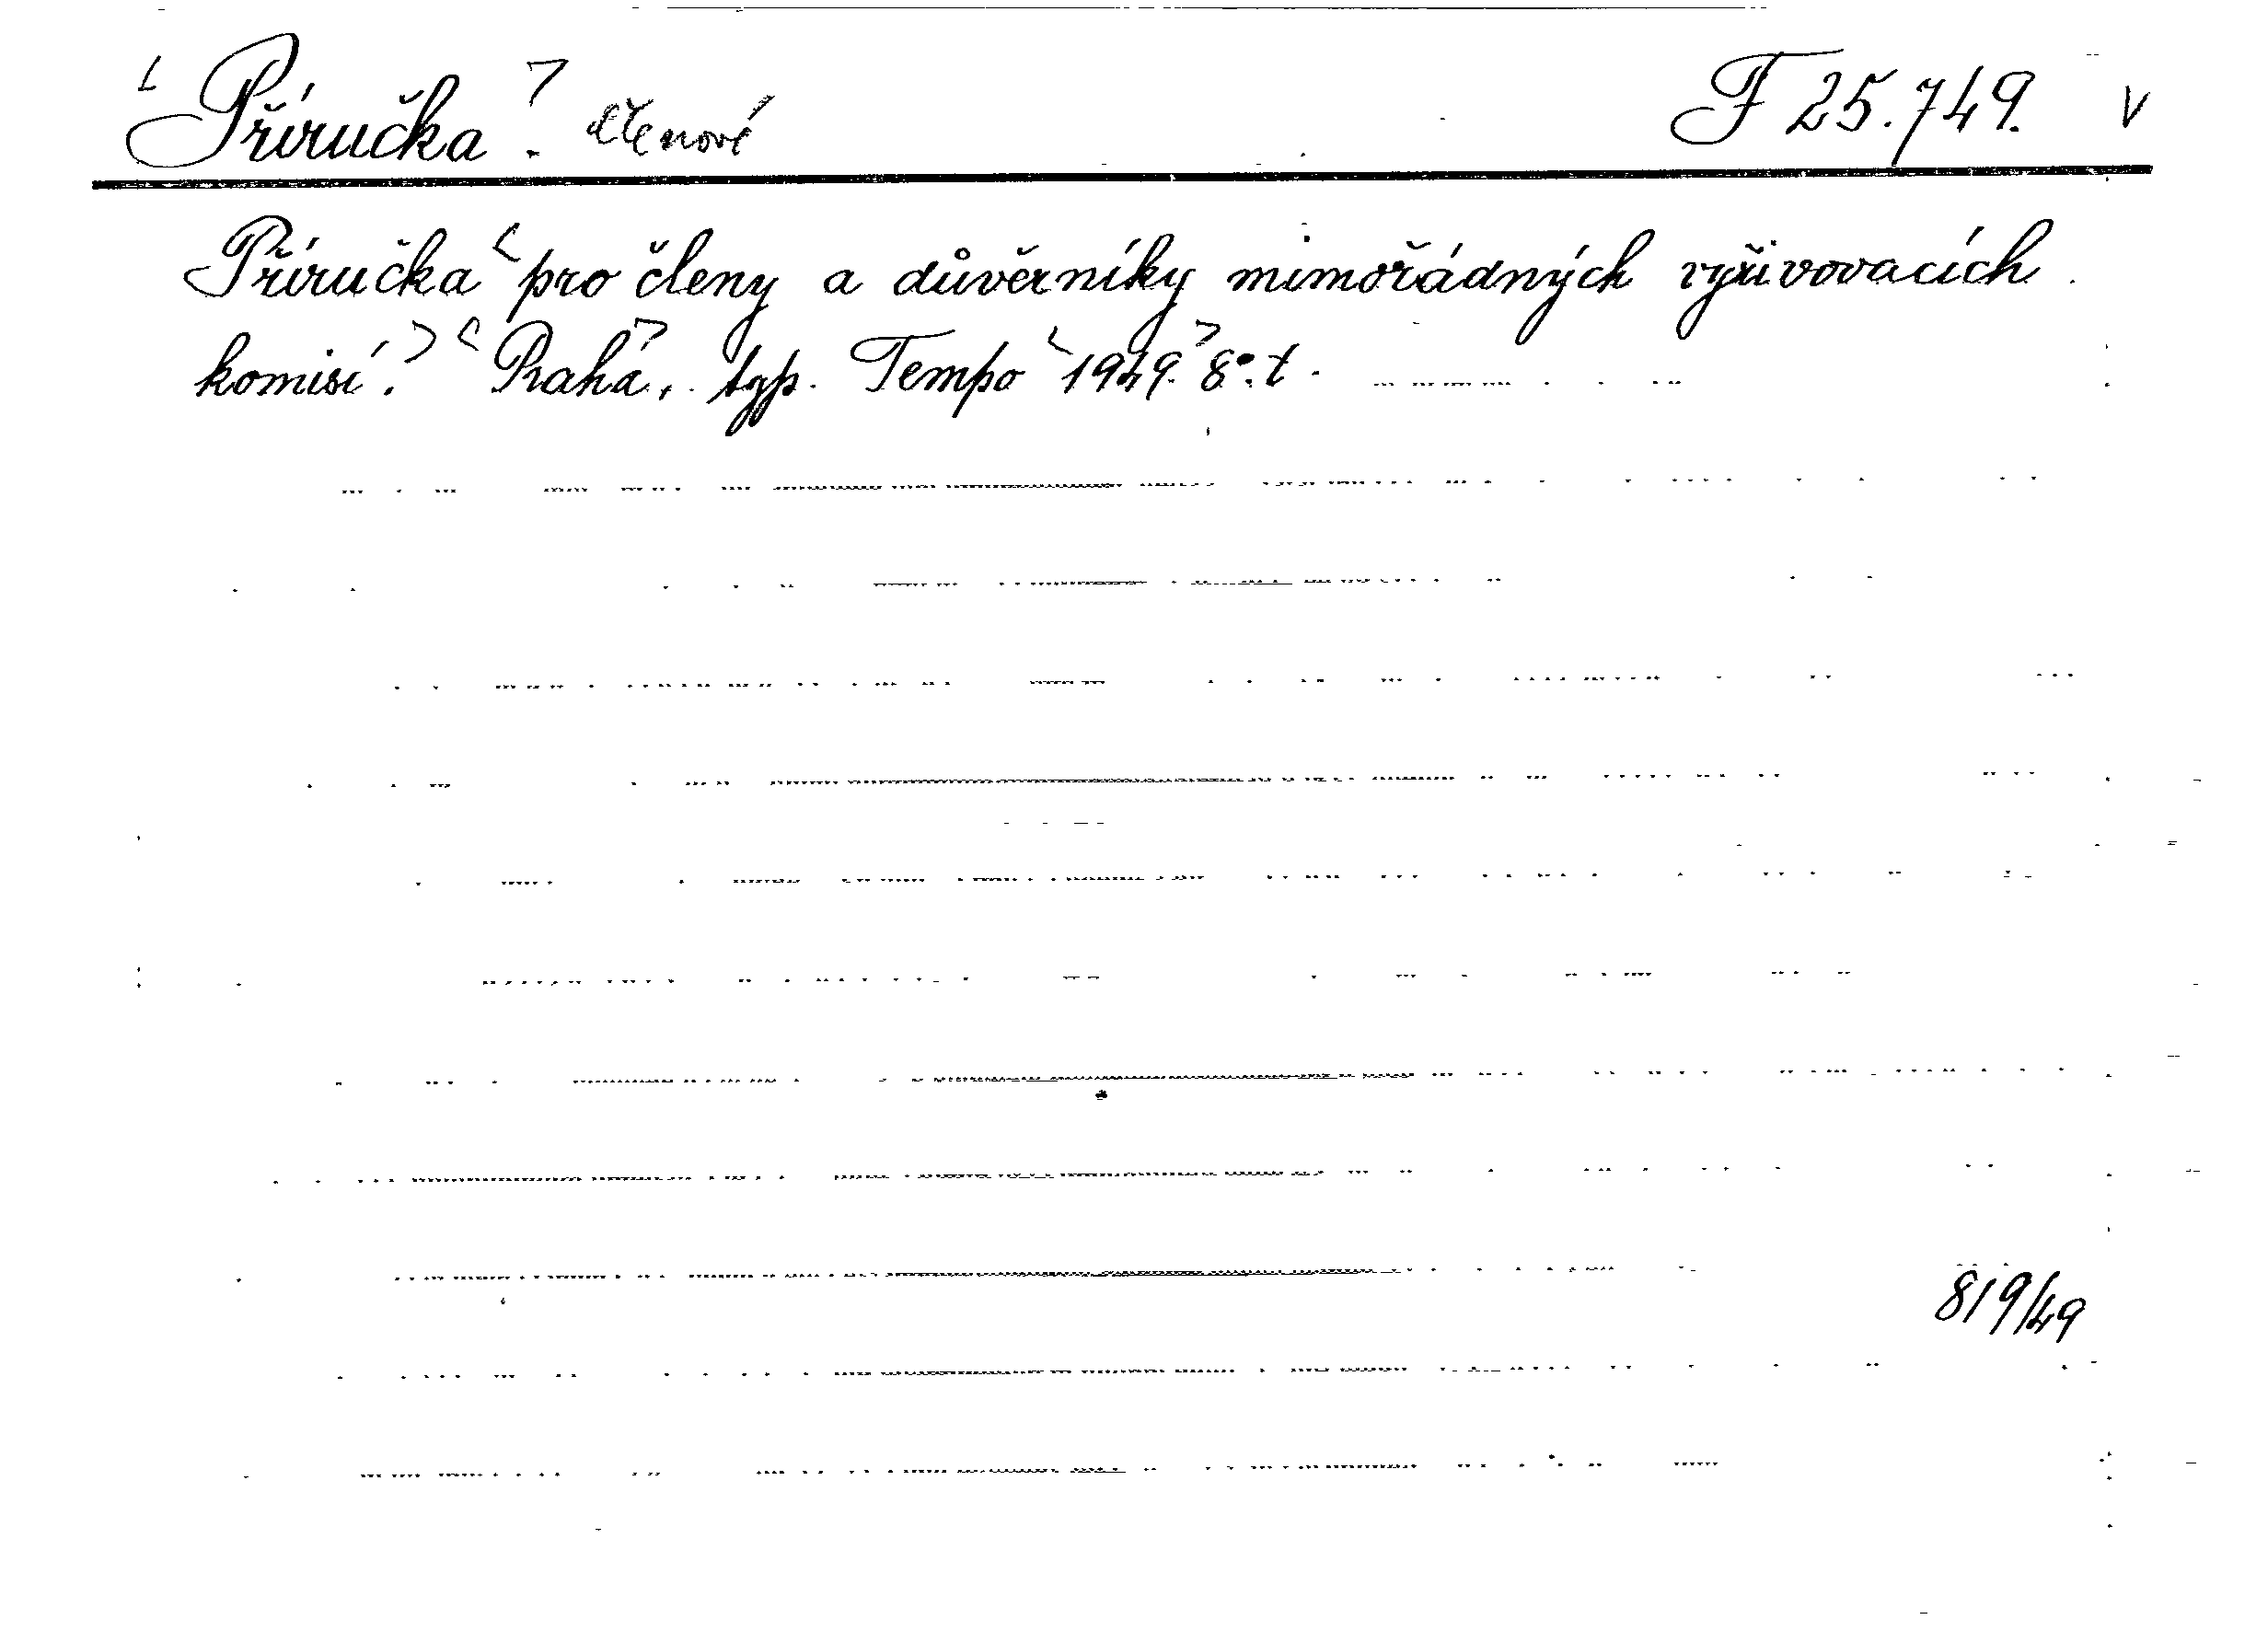 Příručka. členové F 25.749. V
Příručka pro členy a důvěrníky mimořádných vyživovacích
komisí. Praha, typ. Tempo 1949. 8°. t.
819/49